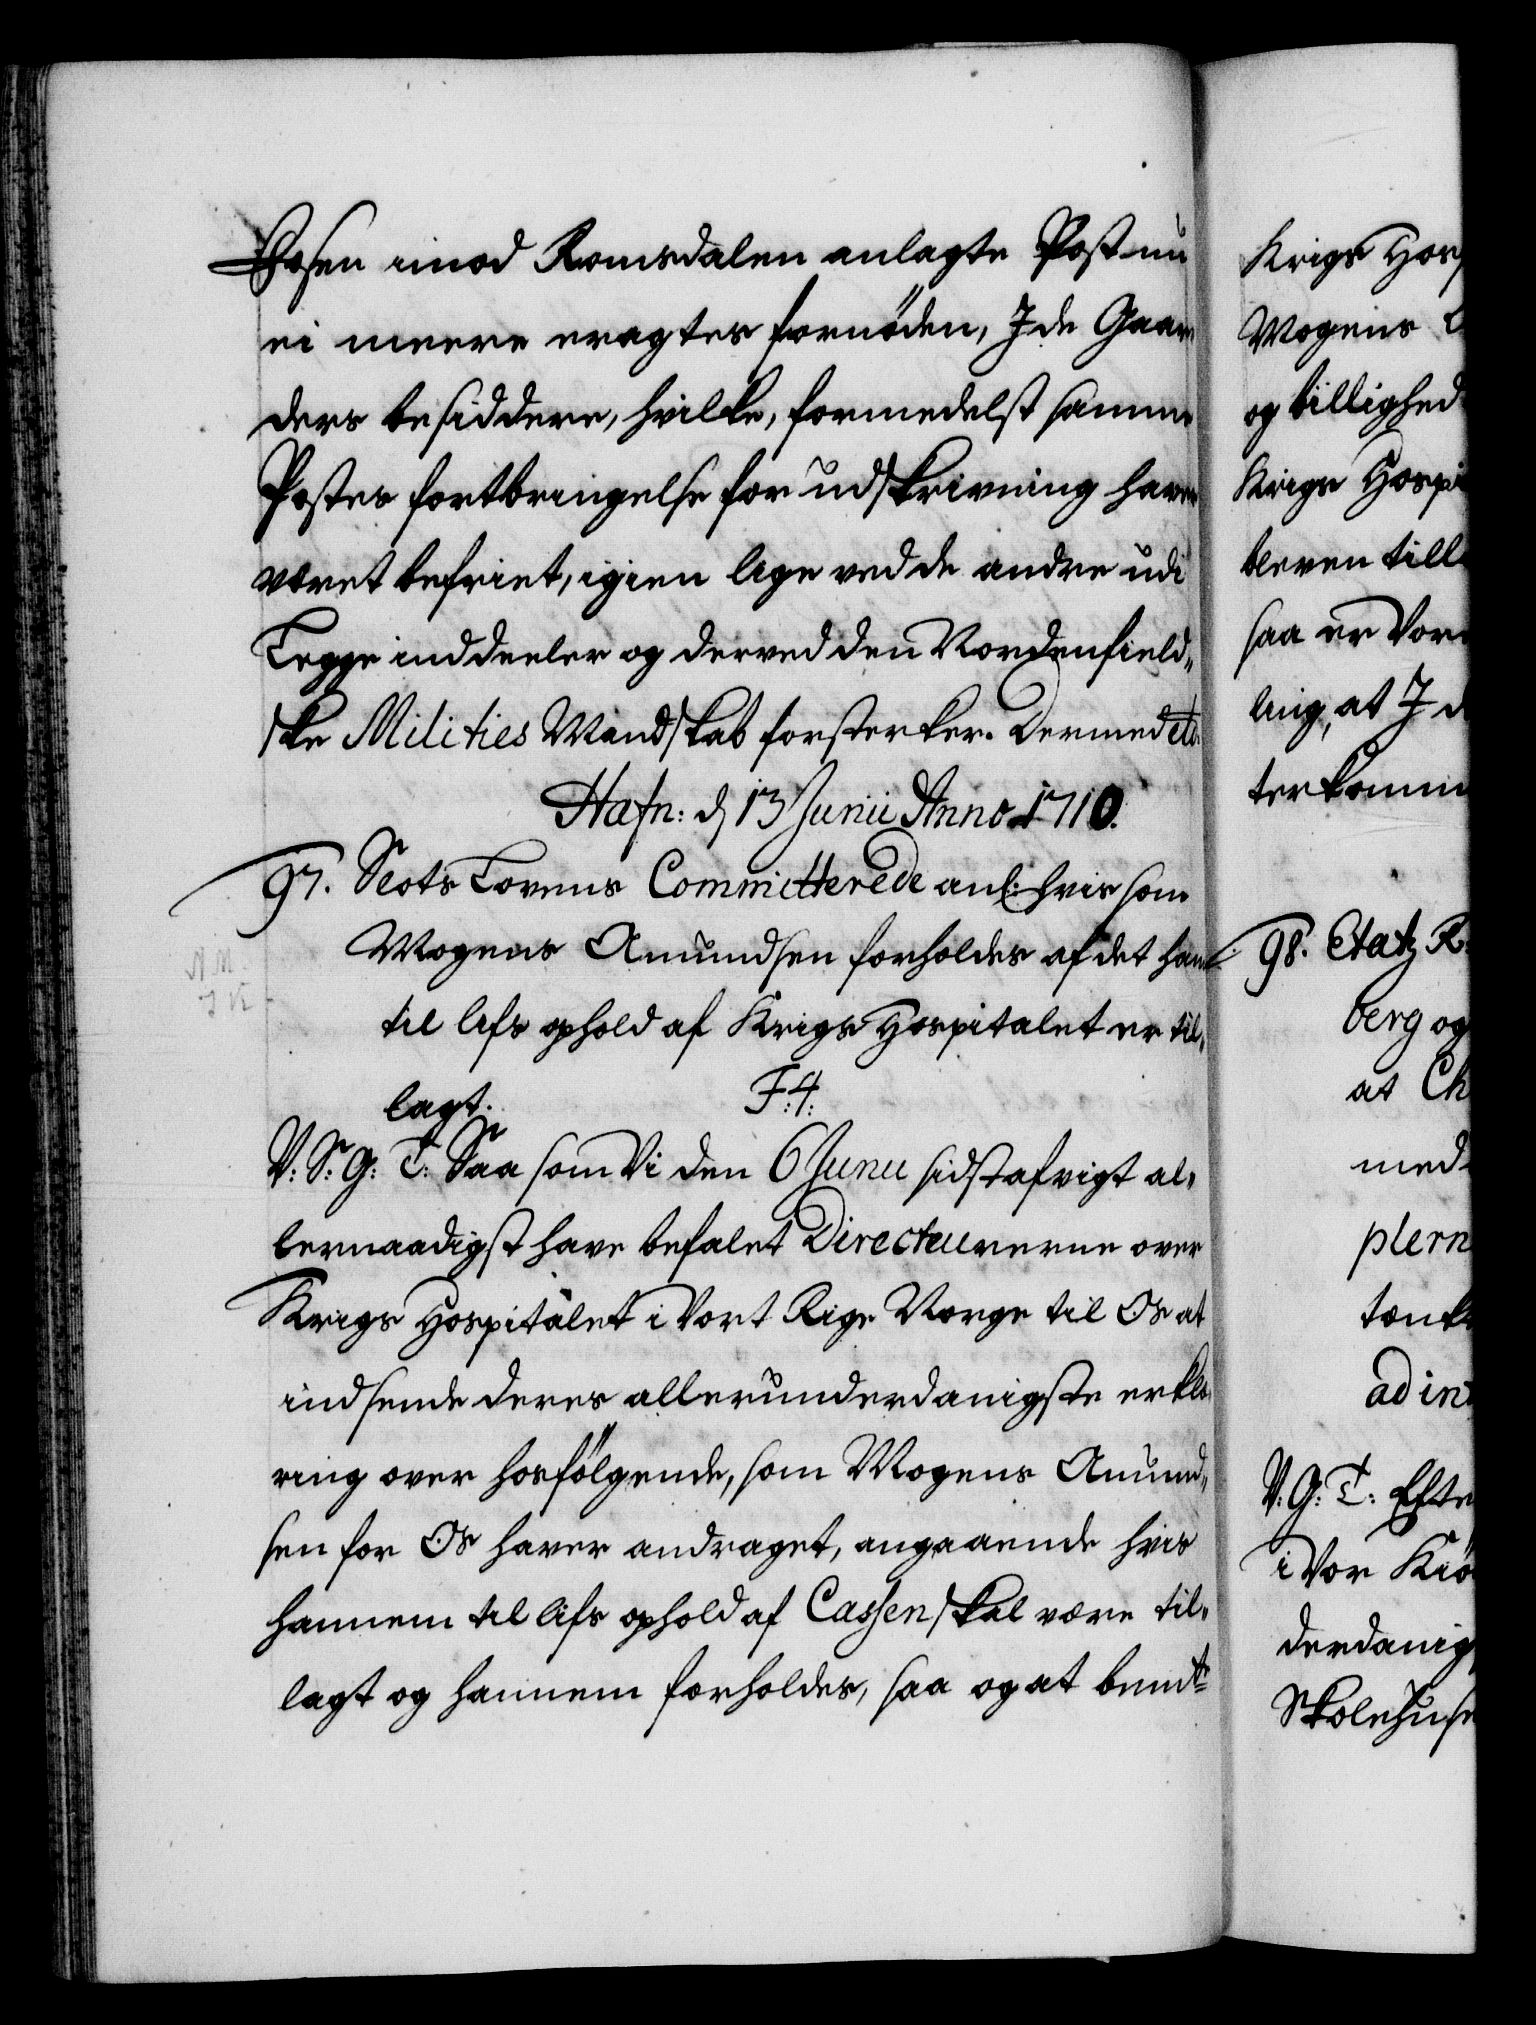 Osen imod Romsdalen anlagte Post nu
ei meere eragtes fornöden, I de Gaar
ders besiddere, hvilke, formedelst samme
Postes fortbringelse for udskrivning have
været befriet, igien lige ved de andre udi
Legge inddeeler og derved den Nordenfield„
ske Milities Mandskab forsterker. Dermed etc.
Hafn: d 13 Junii Anno 1710.
97. Slots Lovens Committerede anl: hvis som
Mogens Amundsen forholdes af det ham
til lifs ophold af Krigs Hospitalet er til„
lagt. F: 4:
V: S: G: T: Saa som Vi den 6 Junii sidstafvigt al„
lernaadigst have befalet Directeurerne over
Krigs Hospitalet i Vort Rige Norge til Os at
indsende deres allerunderdanigste erklæ
ring over hosfölgende, som Mogens Amund„
sen for Os haver andraget, angaaende hvis
hannem til lifs ophold af Cassen skal være til„
lagt og hannem forholdes, saa og at bemte
N.M.
I K
Krigs Hos
Mogens
og billighed
Krigs Hospi
bleven till
saa er Vor
ling, at I d
terkomm
98. Etatz R
berg og
at Ch
med
plern
tænk
ad in
V: G: T: Efte
i Vor Kiö
derdanig
Skolehuse